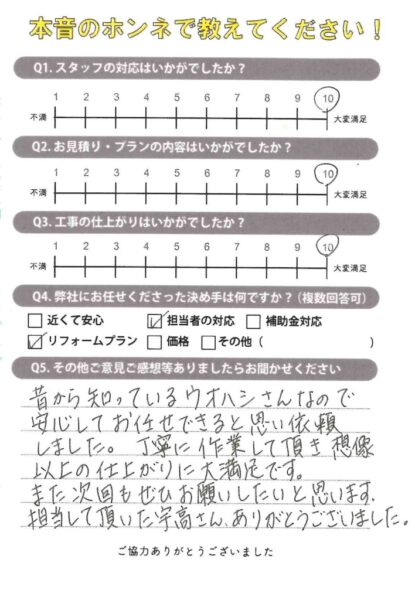 本音のホンネで教えてください！
Q1. スタッフの対応はいかがでしたか？
1 2 3 4 5 6 7 8 9 10
不満 大変満足
Q2. お見積り・プランの内容はいかがでしたか？
1 2 3 4 5 6 7 8 9 10
不満 大変満足
Q3. 工事の仕上がりはいかがでしたか？
1 2 3 4 5 6 7 8 9 10
不満 大変満足
Q4. 弊社にお任せくださった決め手は何ですか？（複数回答可）
□ 近くて安心 ☑ 担当者の対応 □ 補助金対応
☑ リフォームプラン □ 価格 □ その他（ ）
Q5. その他ご意見ご感想等ありましたらお聞かせください
昔から知っているウオハシさんなので
安心してお任せできると思い依頼
しました。丁寧に作業して頂き想像
以上の仕上がりに大満足です。
また次回もぜひお願いしたいと思います。
担当して頂いた宇高さん、ありがとうございました。
ご協力ありがとうございました